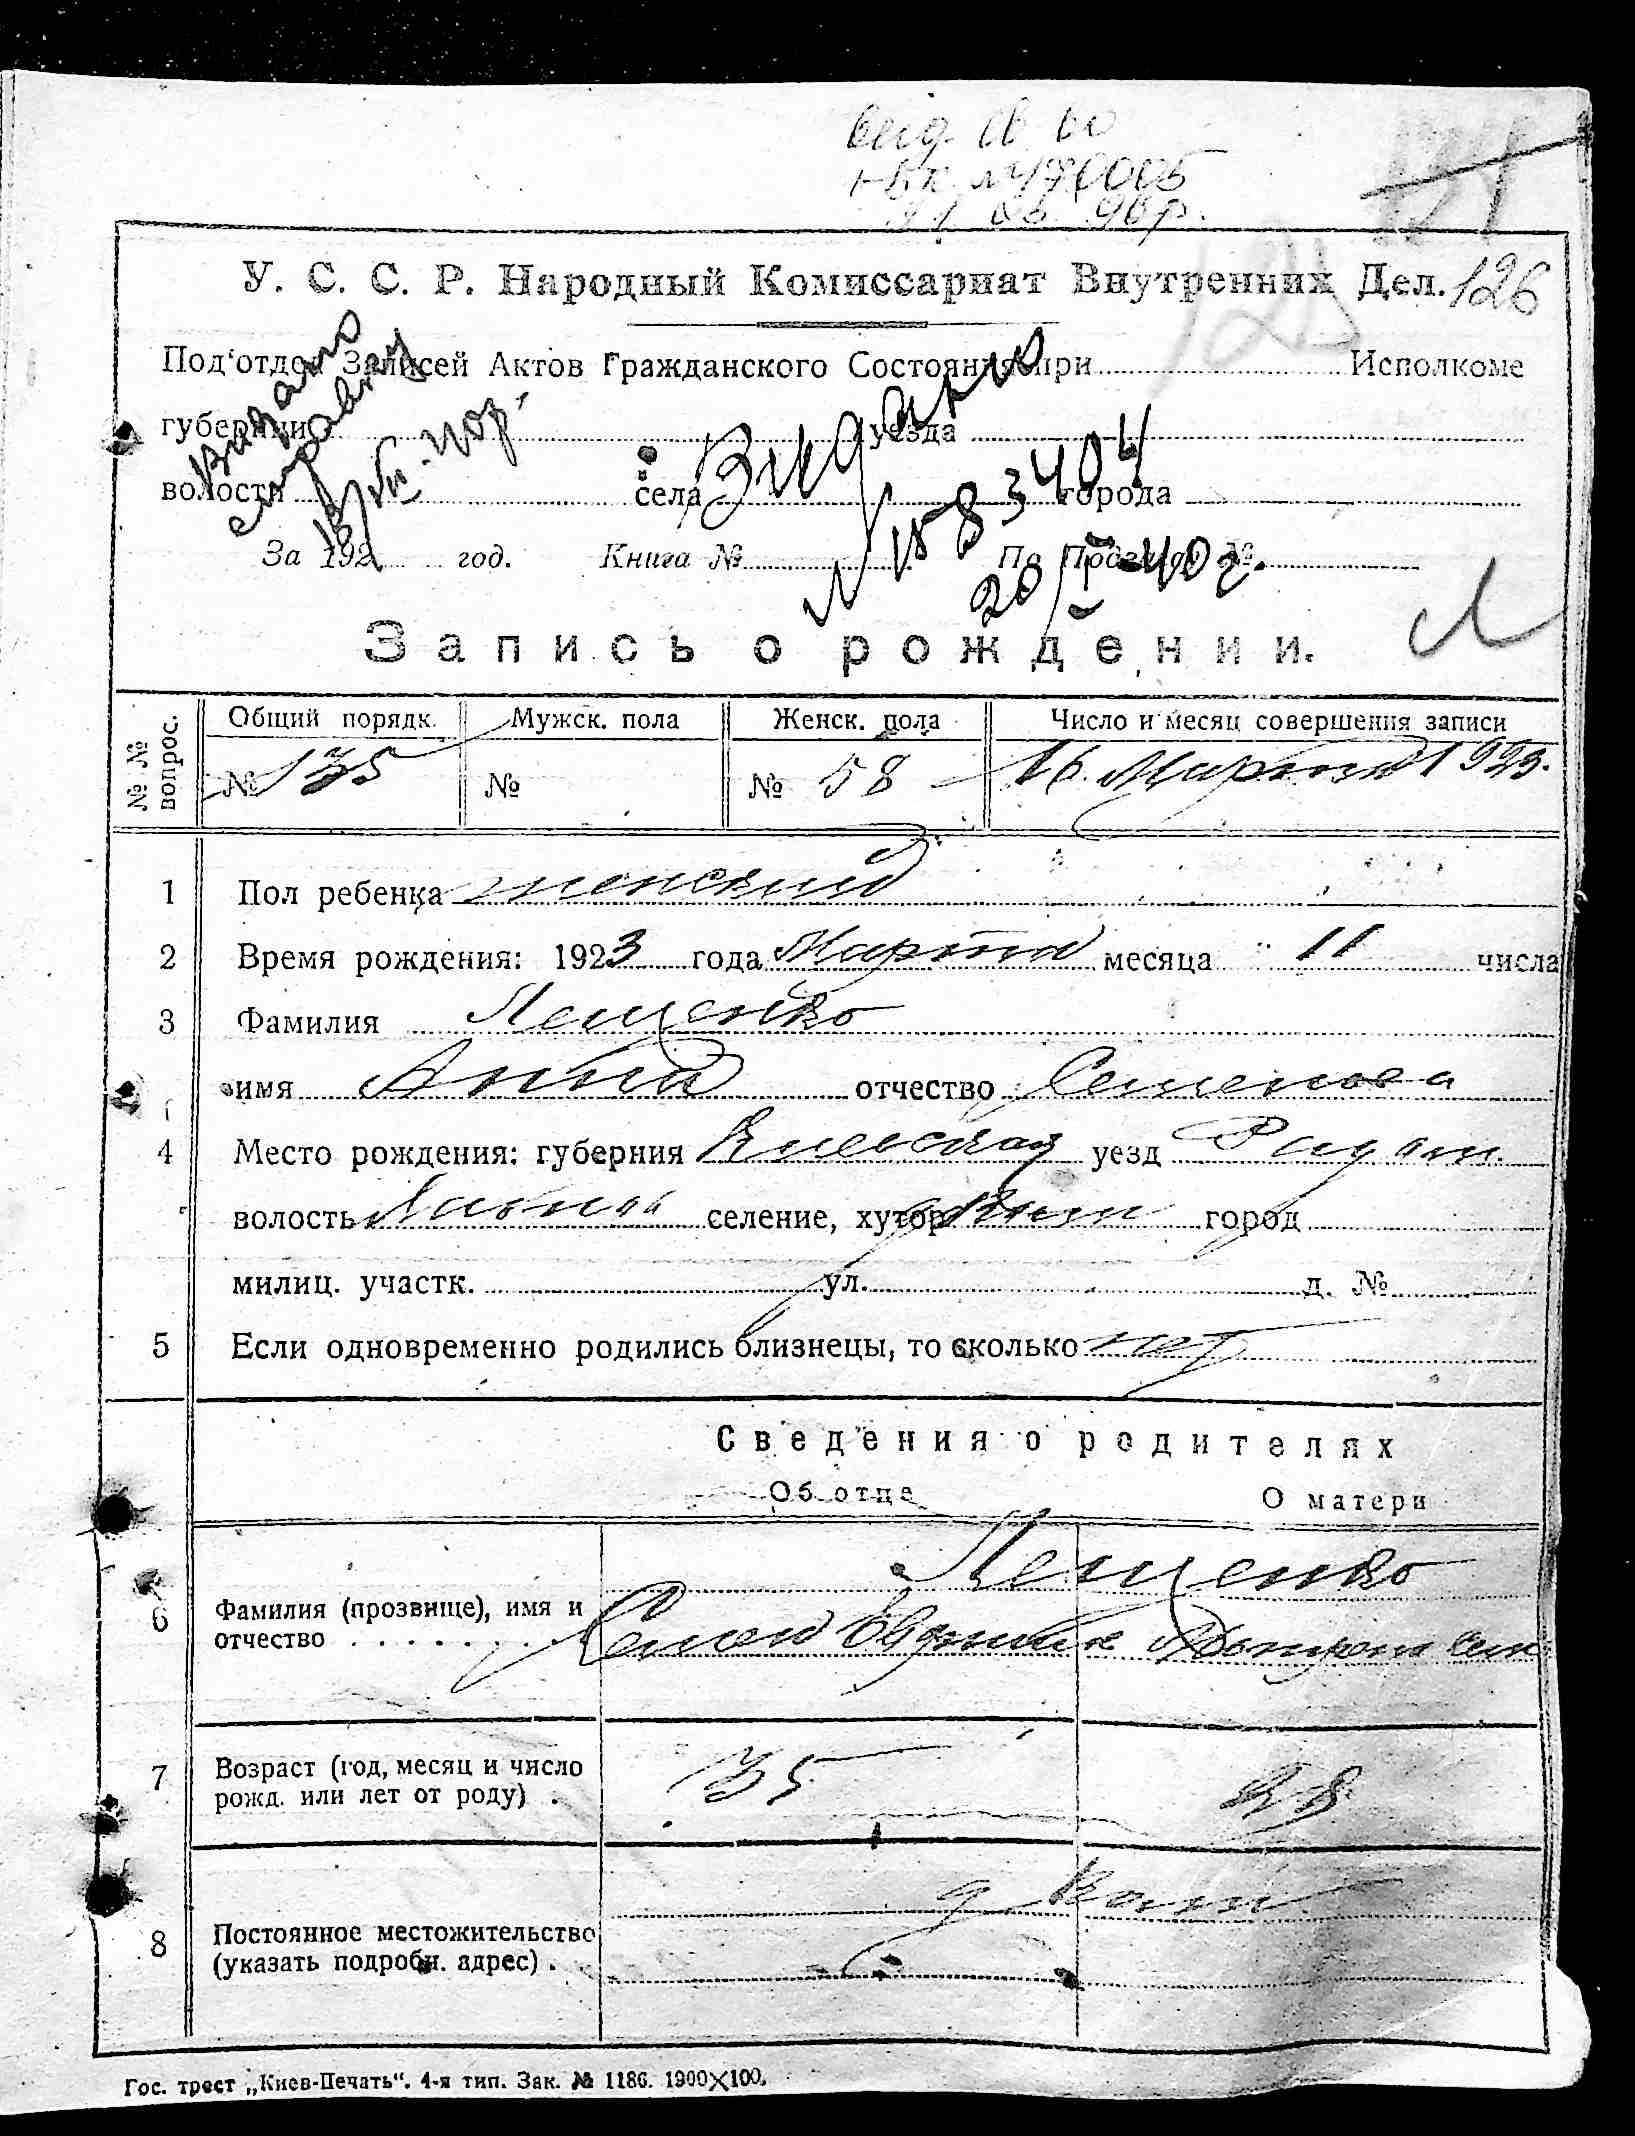 У. С. С. Р. Народный Комиссариат Внутренних Дел. 126
Под'отдел Записей Актов Гражданского Состояния при Исполкоме
губернии уезда
волости села города
Выдано
справку
Видано
№ 183404
20/I-40г.
За 192 год. Книга № По №
Запись о рождении.
№ № вопрос.
Общий порядк. Мужск. пола Женск. пола Число и месяц совершения записи
№ 135 № № 58 16 Марта 1923.
1 Пол ребенка женский
2 Время рождения: 1923 года Марта месяца 11 числа
3 Фамилия Лещенко
имя Анна отчество Семенова
4 Место рождения: губерния Киевская уезд
волость селение, хутор город
милиц. участк. ул. д. №
5 Если одновременно родились близнецы, то сколько нет
Сведения о родителях
Об отце О матери
Лещенко
6 Фамилия (прозвище), имя и
отчество Семен
7 Возраст (год, месяц и число
рожд. или лет от роду) . 35 28
8 Постоянное местожительство
(указать подробн. адрес) .
Гос. трест „Киев-Печать“. 4-я тип. Зак. № 1186. 1900×100.